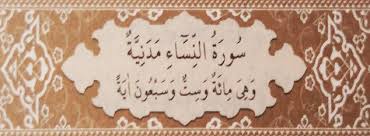 سُورَةُ النِّسَاءِ مَدَنِيَّةٌ
وَهِىَ مِائَةٌ وَسِتٌّ وَسَبْعُونَ اٰيَةً